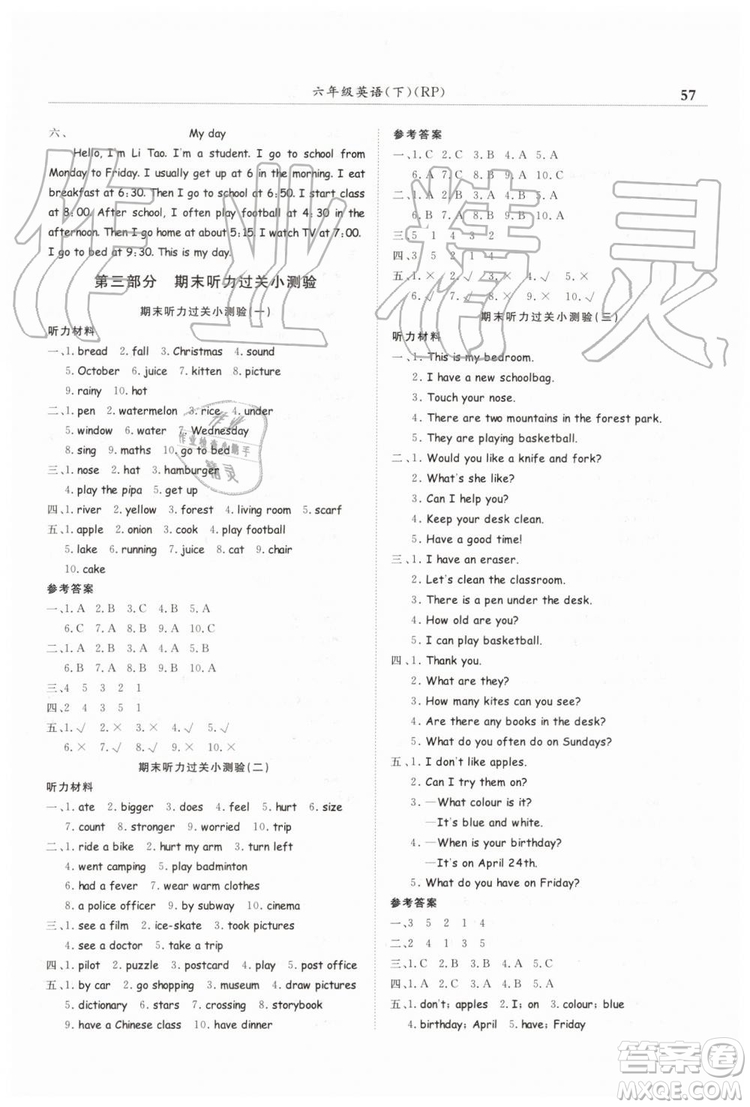 六年级英语(下)(RP)
57
六、 My day
Hello, I'm Li Tao. I am a student. I go to school from
Monday to Friday. I usually get up at 6:00 in the morning. I eat
breakfast at 6:30. Then I go to school at 6:50. I start class
at 8:00. After school, I often play football at 4:30 in the
afternoon. Then I go home at about 5:15. I watch TV at 7:00.
I go to bed at 9:30. This is my day.
第三部分 期末听力过关小测验
期末听力过关小测验(一)
听力材料
一、1. bread 2. fall 3. Christmas 4. sound
5. October 6. juice 7. kitten 8. picture
9. rainy 10. hot
二、1. pen 2. watermelon 3. rice 4. under
5. window 6. water 7. Wednesday
8. sing 9. maths 10. go to bed
三、1. nose 2. hat 3. hamburger
4. play the pipa 5. get up
四、1. river 2. yellow 3. forest 4. living room 5. scarf
五、1. apple 2. onion 3. cook 4. play football
5. lake 6. running 7. juice 8. eraser 9. taxi
10. cake
参考答案
一、1. A 2. B 3. C 4. B 5. A
6. C 7. A 8. B 9. A 10. C
二、1. A 2. C 3. A 4. B 5. A
6. B 7. C 8. B 9. A 10. C
三、4 5 3 2 1
四、2 4 3 5 1
五、1. √ 2. × 3. × 4. √ 5. √
6. × 7. √ 8. × 9. √ 10. √
期末听力过关小测验(二)
听力材料
一、1. ate 2. bigger 3. does 4. feel 5. hurt 6. size
7. count 8. stronger 9. worried 10. trip
二、1. ride a bike 2. hurt my arm 3. turn left
4. went camping 5. play badminton
6. had a fever 7. wear warm clothes
8. a police officer 9. by subway 10. cinema
三、1. see a film 2. ice-skate 3. took pictures
4. see a doctor 5. take a trip
四、1. pilot 2. puzzle 3. postcard 4. post office
五、1. by car 2. go shopping 3. museum 4. draw pictures
5. dictionary 6. stars 7. crossing 8. storybook
9. have a Chinese class 10. have dinner
参考答案
一、1. C 2. A 3. C 4. B 5. B
6. A 7. C 8. B 9. A 10. C
二、1. B 2. A 3. B 4. A 5. B
6. B 7. B 8. A 9. A 10. B
三、5 1 4 3 2
四、3 5 2 1 4
五、1. × 2. × 3. √ 4. √ 5. √
6. √ 7. × 8. √ 9. × 10. √
期末听力过关小测验(三)
听力材料
一、1. This is my bedroom.
2. I have a new schoolbag.
3. Touch your nose.
4. There are two mountains in the forest park.
5. They are playing basketball.
二、1. Would you like a knife and fork?
2. What's she like?
3. Can I help you?
4. Keep your desk clean.
5. Have a good time!
三、1. I have an eraser.
2. Let's clean the classroom.
3. There is a pen under the desk.
4. How old are you?
5. I can play basketball.
四、1. Thank you.
2. What are they?
3. How many kites can you see?
4. Are there any books in the desk?
5. What do you often do on Sundays?
五、1. I don't like apples.
2. Can I try them on?
3. —What colour is it?
—It's blue and white.
4. —When is your birthday?
—It's on April 24th.
5. What do you have on Friday?
参考答案
一、3 5 2 1 4
二、2 4 1 3 5
三、1. C 2. B 3. C 4. B 5. A
四、1. B 2. A 3. C 4. A 5. C
五、1. don't; apples 2. I; on 3. colour; blue
4. birthday; April 5. have; Friday
作业精灵
作业
作业检查小助手
精灵
答案圈
MXQE.COM